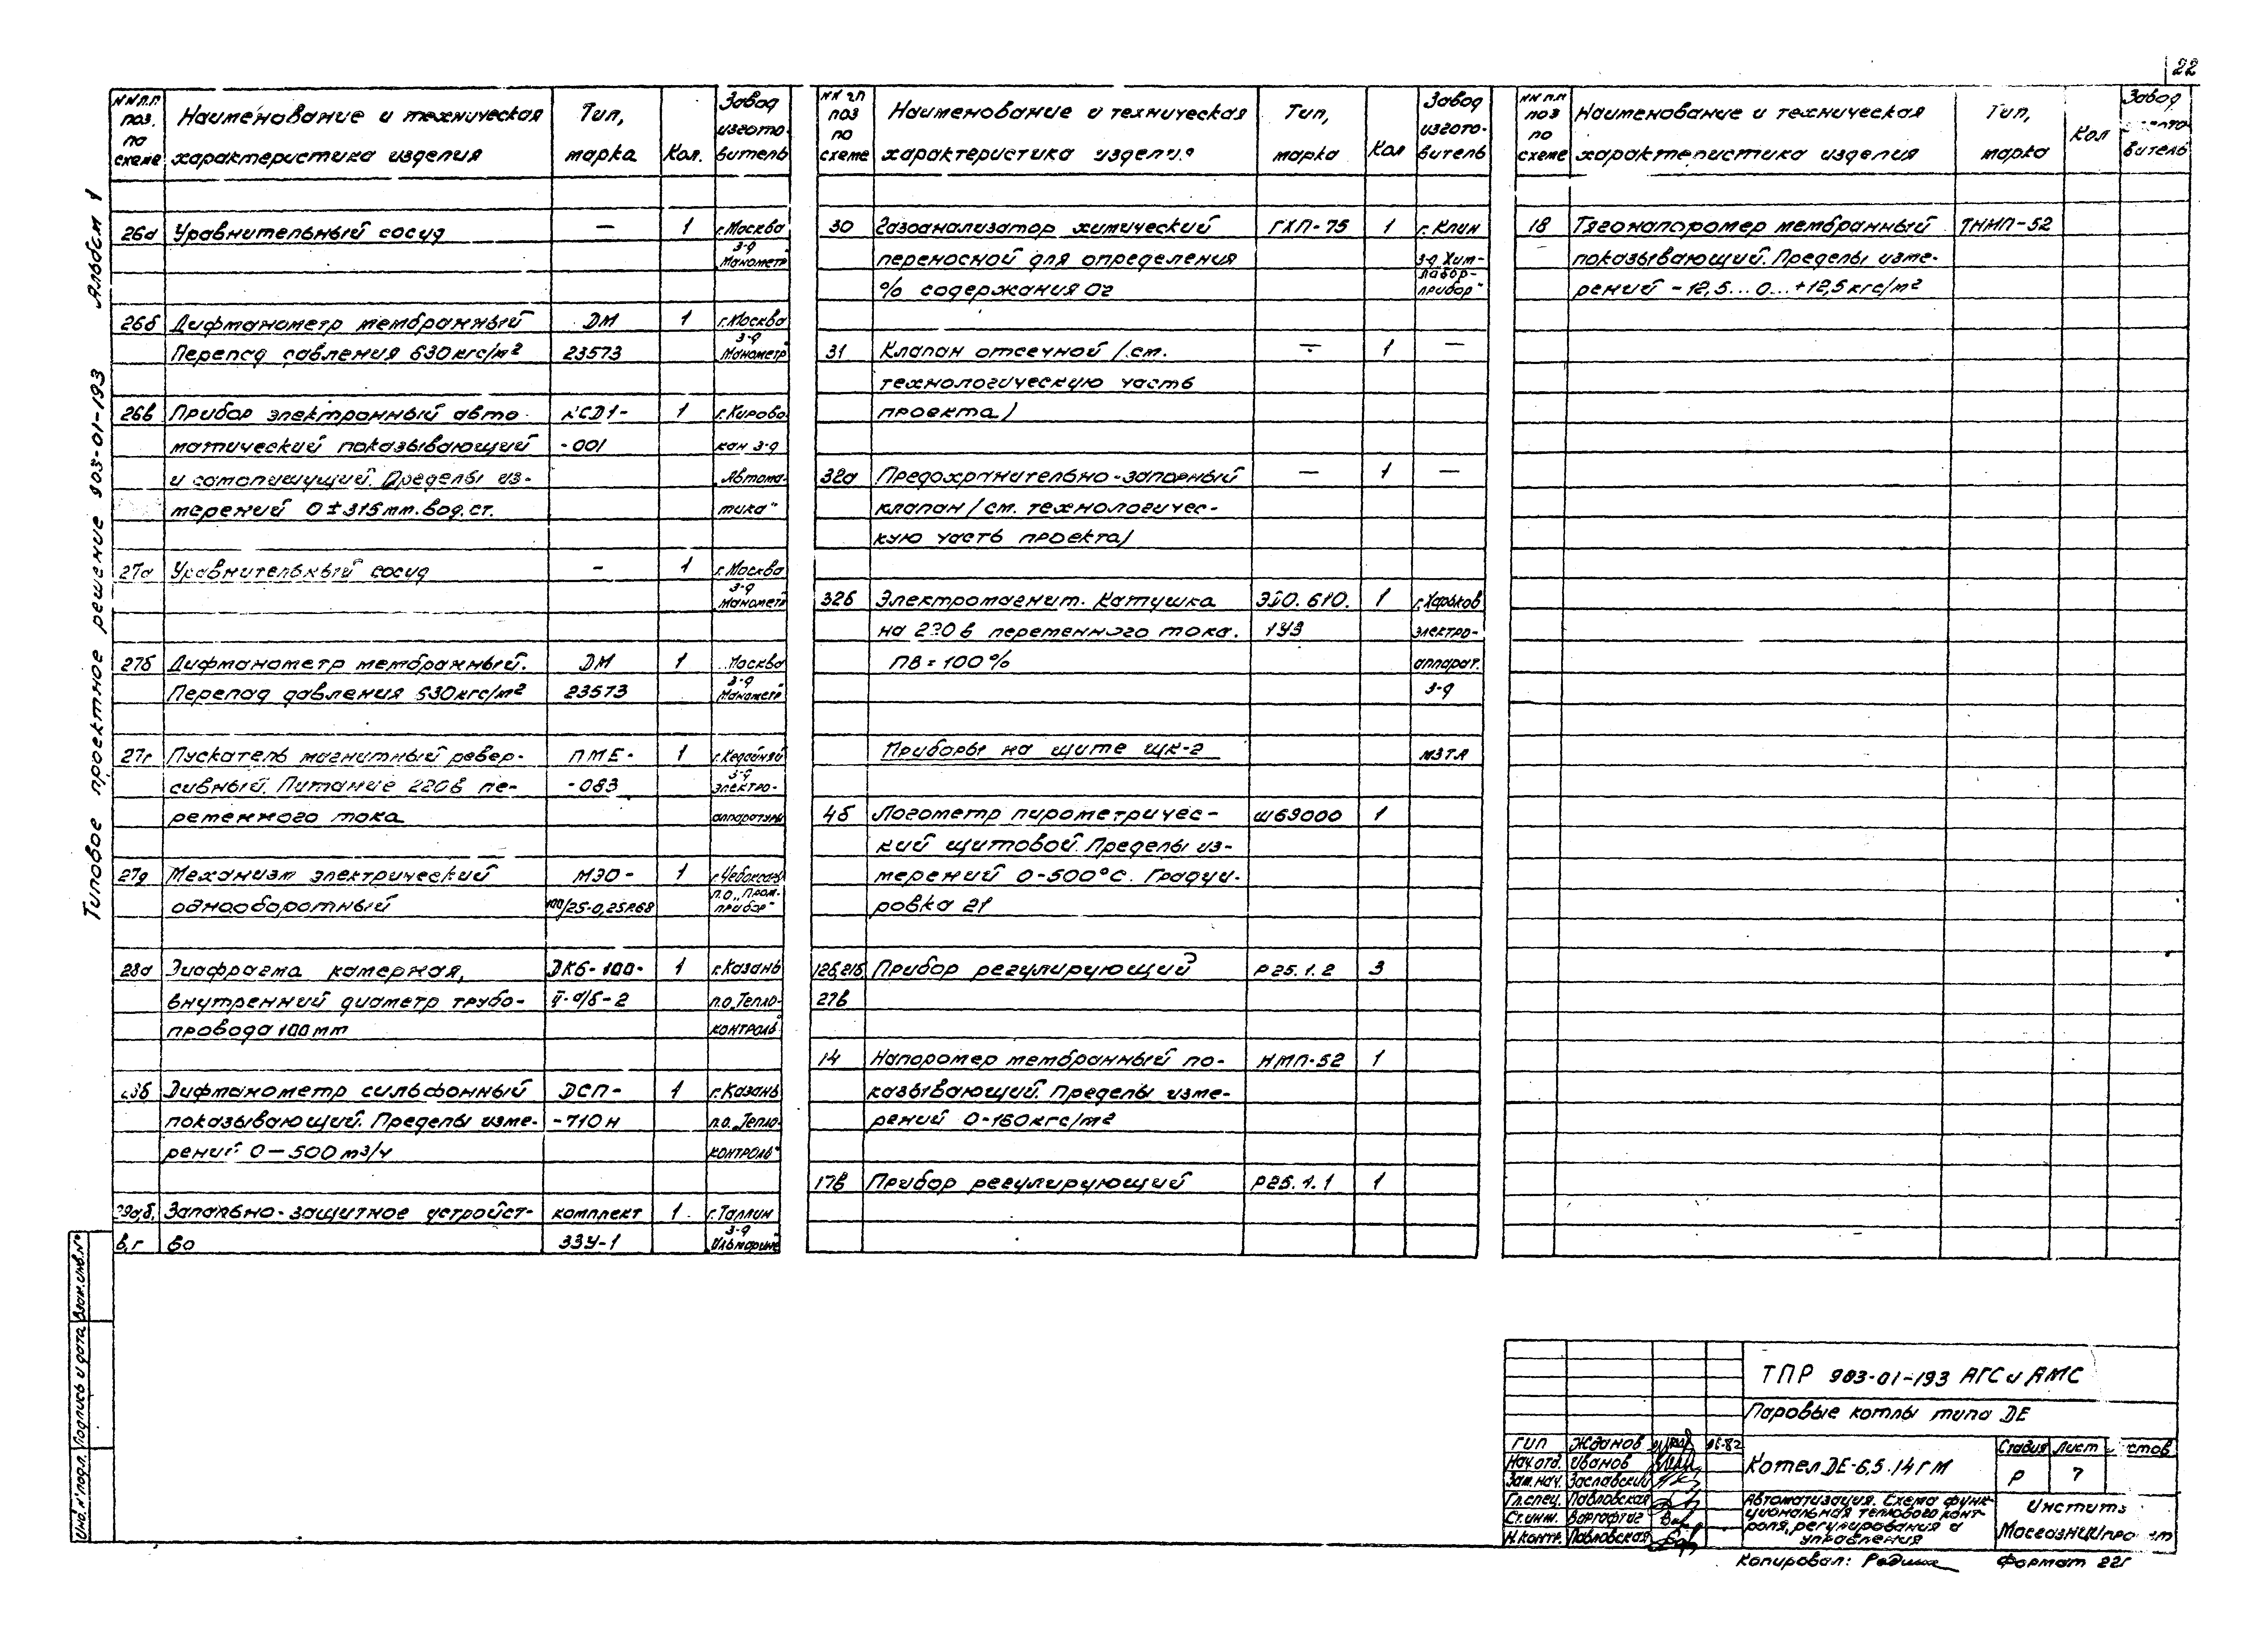 22
Альбом 1
Типовое проектное решение 903-01-193
NN п.п. поз. по схеме
Наименование и техническая характеристика изделия
Тип, марка
Кол.
Завод изгото-витель
26а Уравнительный сосуд — 1 г.Москва
з-д
Манометр
26б Дифманометр мембранный ДМ 1 г.Москва
з-д
Перепад давления 630 кгс/м² 23573 Манометр
26в Прибор электронный авто- КСД1- 1 г.Кирово-
матический показывающий -001 кан з-д
и самопишущий. Пределы из- „Автома-
мерений 0±315 мм.вод.ст. тика"
27а Уравнительный сосуд — 1 г.Москва
з-д
Манометр
27б Дифманометр мембранный. ДМ 1 Москва
з-д
Перепад давления 630 кгс/м² 23573 Манометр
27г Пускатель магнитный ревер- ПМЕ- 1 г.Кедайняй
з-д
сивный. Питание 220в пе- -083 электро-
ременного тока аппаратуры
27д Механизм электрический МЭО- 1 г.Чебоксары
п.о. „Пром-
однооборотный 100/25-0,25Р68 прибор"
28а Диафрагма камерная, ДК6-100- 1 г.Казань
внутренний диаметр трубо- II-а/б-2 п.о.„Тепло-
провода 100 мм контроль"
Дифманометр сильфонный ДСП- 1 г.Казань
показывающий. Пределы изме- -710н п.о.„Тепло-
рений 0—500 м³/ч контроль"
29а,б, Запально-защитное устройст- комплект 1 г.Таллин
з-д
в,г во ЗЗУ-1 Ильмарине
NN п.п поз по схеме
Наименование и техническая характеристика изделия
Тип, марка
Кол
Завод изгото-витель
30 Газоанализатор химический ГХП-75 1 г.Клин
переносной для определения з-д Хим-
лабор-
% содержания О2 прибор"
31 Клапан отсечной /см. — 1 —
технологическую часть
проекта/
32а Предохранительно-запорный — 1 —
клапан /см. технологичес-
кую часть проекта/
32б Электромагнит. Катушка 1 г.Харьков
на 220в переменного тока. 1У3 электро-
ПВ=100% аппарат.
з-д
Приборы на щите ЩК-2 МЗТА
4б Логометр пирометричес- Ш69000 1
кий щитовой. Пределы из-
мерений 0-500°С. Градуи-
ровка 21
12б,21б, Прибор регулирующий Р25.1.2 3
27в
14 Напоромер мембранный по- НМП-52 1
казывающий. Пределы изме-
рений 0-160 кгс/м²
17в Прибор регулирующий Р25.1.1 1
NN п.п поз по схеме
Наименование и техническая характеристика изделия
Тип, марка
Кол
Завод витель
18 Тягонапоромер мембранный ТНМП-52
показывающий. Пределы изме-
рений -12,5...0...+12,5 кгс/м²
Инв.N°подл. Подпись и дата Взам.инв.N°
ТПР 903-01-193 АГС и АМС
Паровые котлы типа ДЕ
ГИП Жданов
Нач.отд. Иванов
Зам.нач. Заславский
Гл.спец. Павловская
Ст.инж. Варгафтиг
Н.контр. Павловская
Котел ДЕ-6,5-14ГМ
Стадия Лист
Р 7
Автоматизация. Схема функ-
циональная теплового конт-
роля, регулирования и
управления
Институ
МосгазНИИпро т
Копировал: Формат 22г